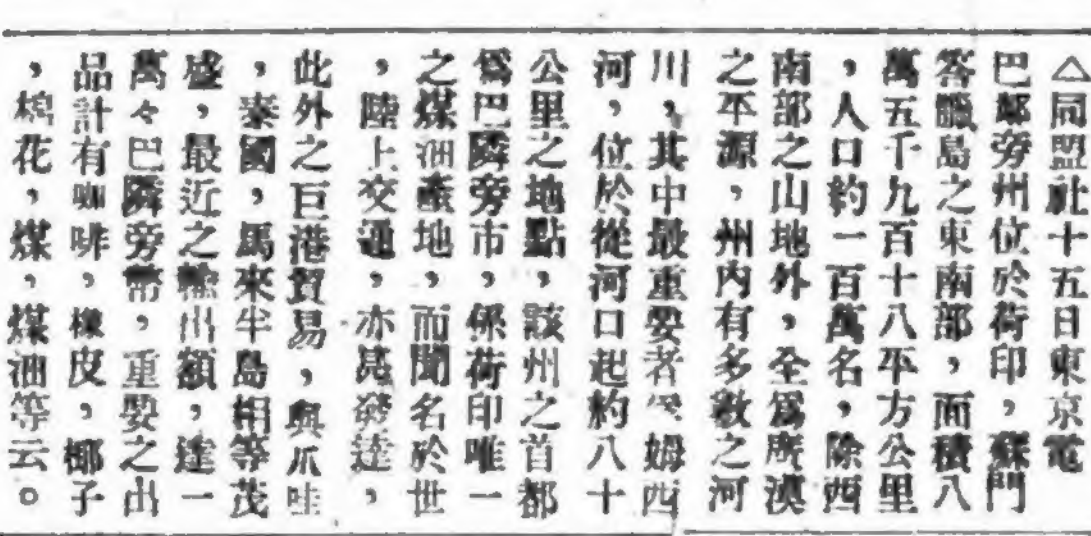 △同盟社十五日東京電
巴鄰旁州位於荷印，蘇門
答臘島之東南部，面積八
萬五千九百十八平方公里
，人口約一百萬名，除西
南部之山地外，全爲所漠
之平源，州內有多數之河
川，其中最重要者爲姆西
河，位於從河口起約八十
公里之地點，該州之首都
爲巴隣旁市，係荷印唯一
之煤油產地，而聞名於世
，陸上交通，亦甚發達，
此外之巨港貿易，與爪哇
，泰國，馬來半島相等茂
盛，最近之輸出額，達一
萬々巴隣旁幣，重要之出
品計有咖啡，橡皮，椰子
，棉花，煤，煤油等云。